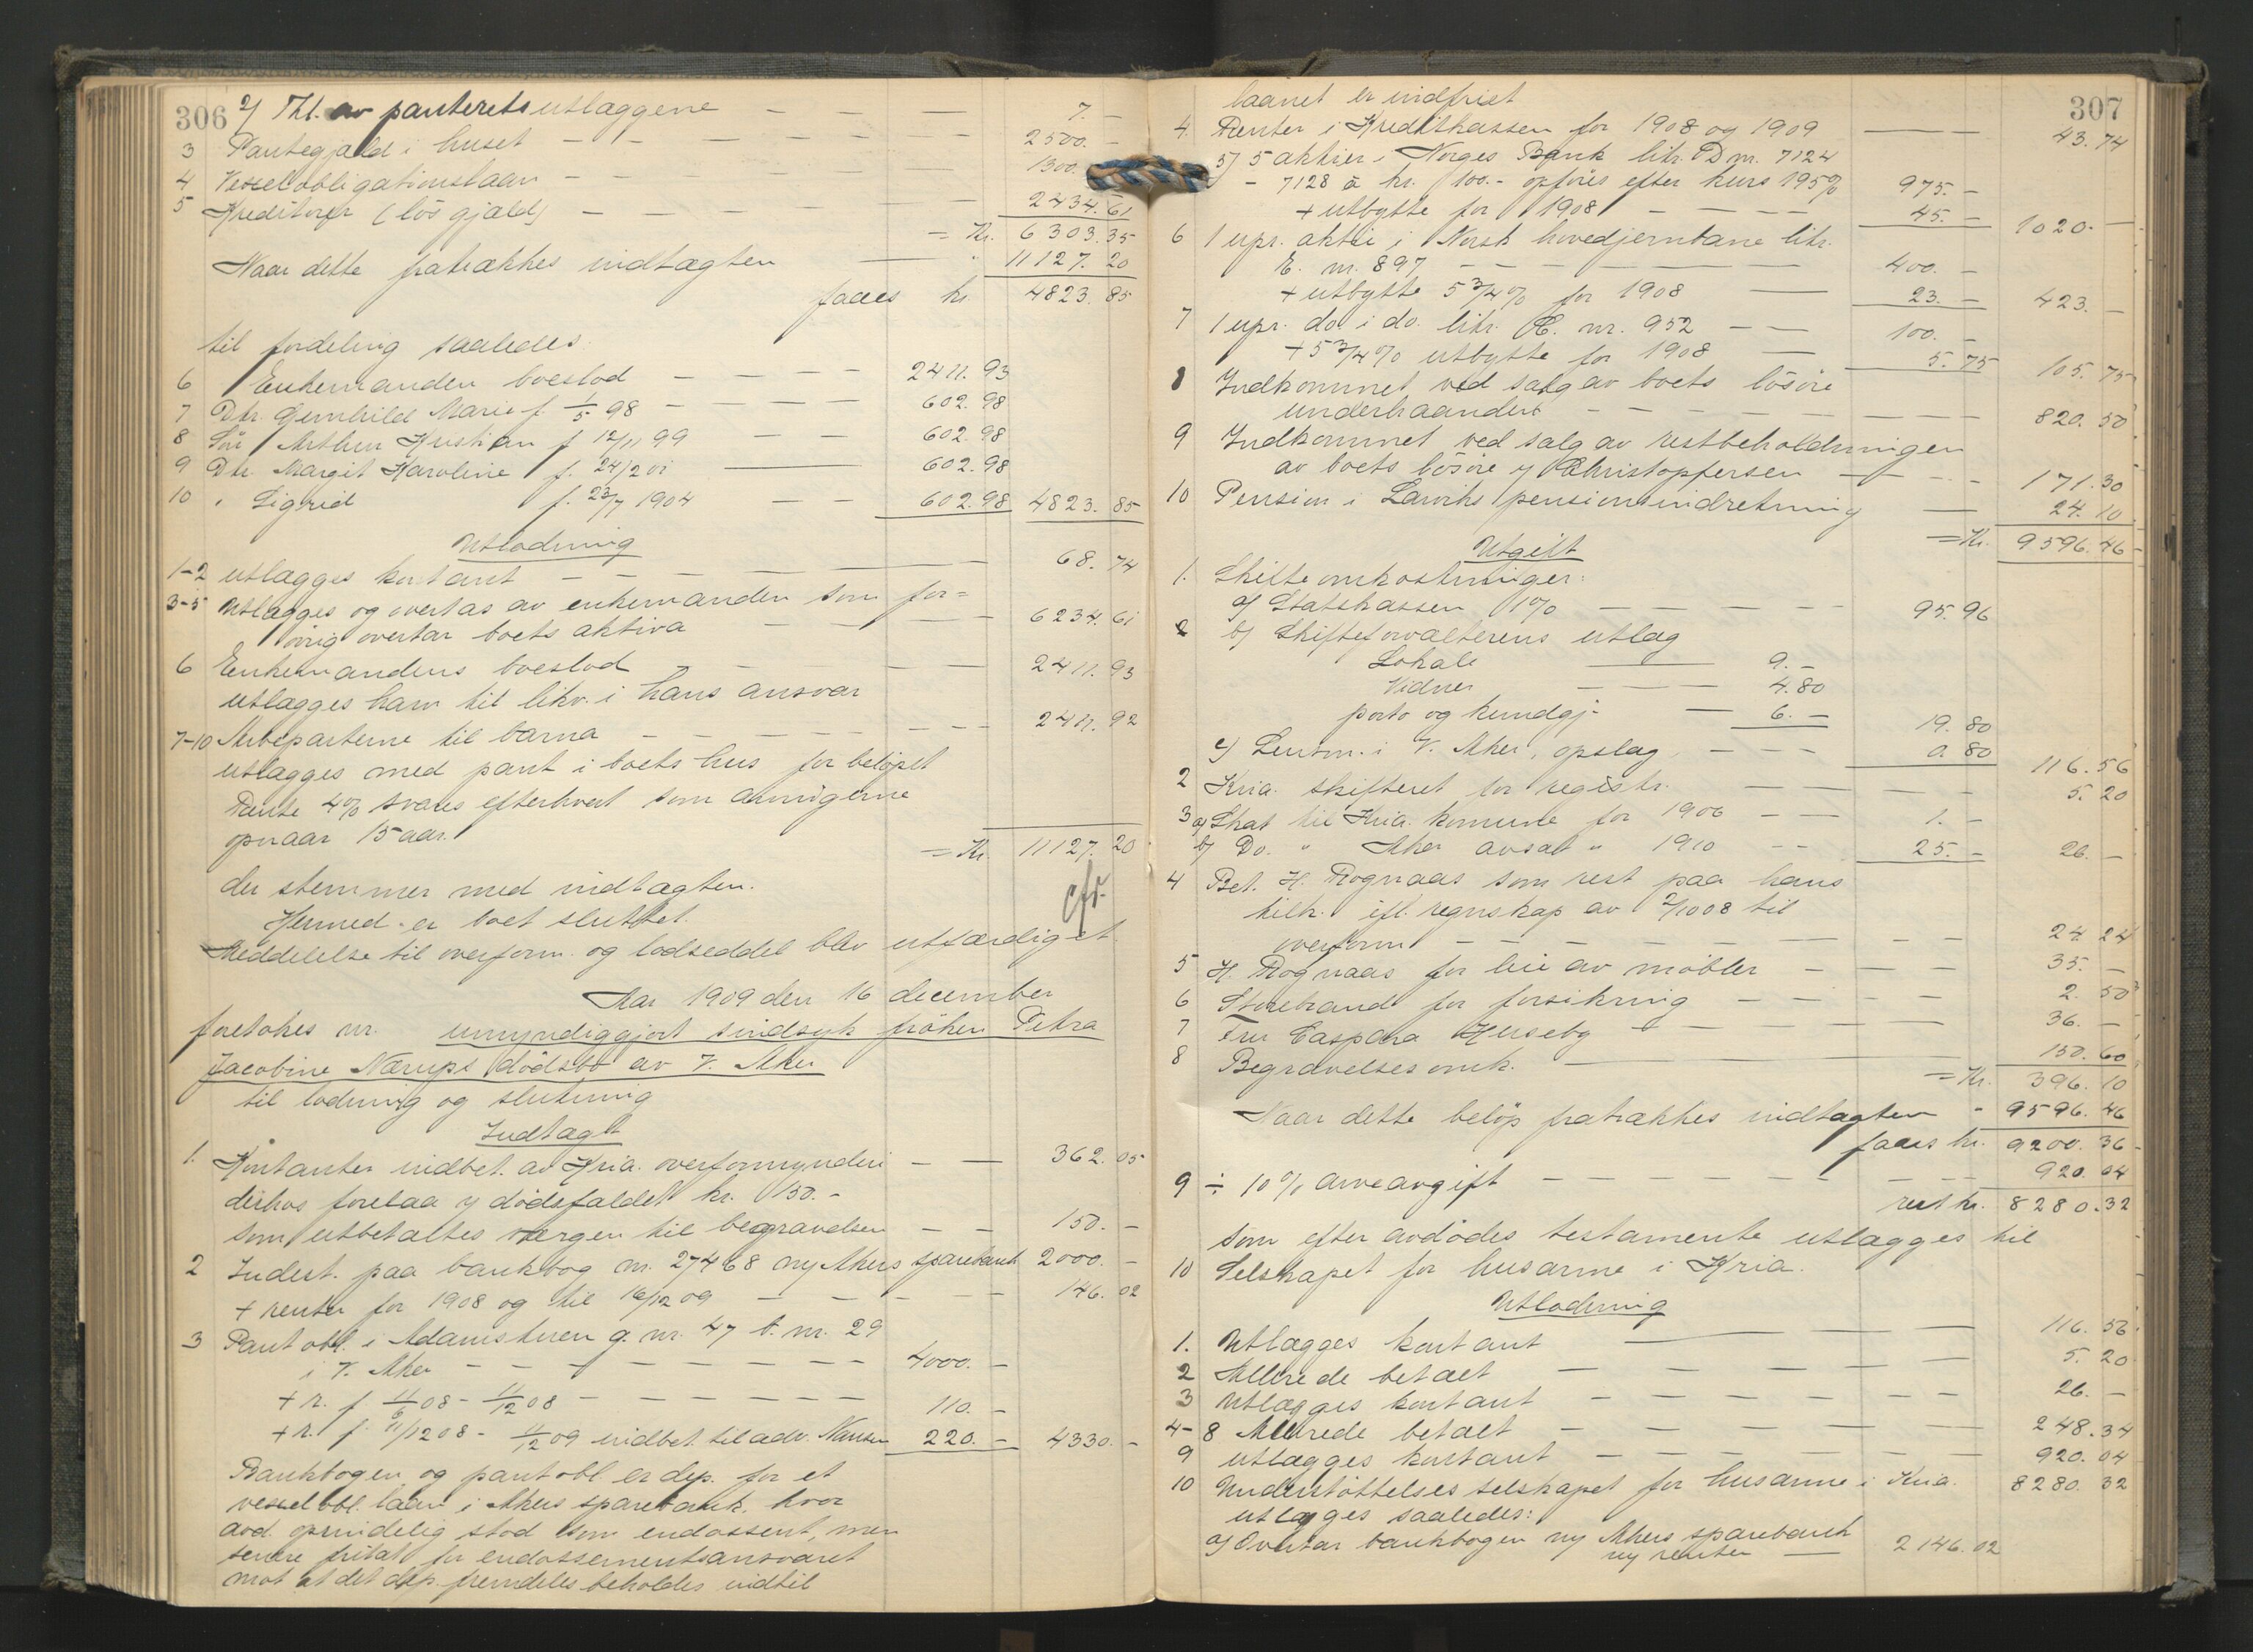 306
2/ Thl. av panteretsutlæggene — — — 7. –
3 Pantegjæld i huset — — — — — 2500. –
4 Vexelobligationslaan — — — — 1300.
5 Kreditorer (løs gjæld) — — — — 2434.61
= Kr. 6303.35
Naar dette fratrækkes indtægten — " 11127.20
faaes kr. 4823.85
til fordeling saaledes:
6 Enkemanden boeslod — — — — 2411.93
7 Dtr. Gernhild Marie f. 1/5 98 — — — 602.98
8 Søn Arthur Kristian f 12/11 99 — — 602.98
9 Dtr. Margit Karoline f. 24/2 01 — — 602.98
10 " Sigrid f. 23/7 1904 — — 602.98 4823.85
Utlodning
1-2 utlægges kontant — — — — — 68.74
3-5 Utlægges og overtas av enkemanden som for=
øvrig overtar boets aktiva — — — — 6234.61
6 Enkemandens boeslod — — — 2411.93
utlægges ham til likv. i hans ansvar
7-10 Arveparterne til barna — — — — — 2411.92
utlægges med pant i boets hus for beløpet
Rente 4% svares efterhvert som arvingerne
opnaar 15 aar.
= Kr. 11127.20
der stemmer med indtægten.
Hermed er boet sluttet. cfr.
Meddelelse til overform. og lodseddel blev utfærdiget.
Aar 1909 den 16 december
foretokes nr. umyndiggjort sindsyk frøken Petra
Jacobine Nærups dødsbo av V. Aker
til lodning og slutning
Indtægt
1. Kontanter indbet. av Kria. overformynderi — — 362.05
derhos forelaa v/ dødsfaldet kr. 150.–
som utbetaltes værgen til begravelsen — — 150. –
2 Indest. paa bankbog nr. 27468 ny Akers sparebank 2000. –
+ renter for 1908 og til 16/12 09 — — — — 146.02
3 Pantobl. i Adamstuen g. nr. 47 b. nr. 29
i V. Aker — — — — — — — 4000. –
+ r. f 11/6 08 – 11/12 08 — — — — — 110. –
+ r. f. 11/12 08 – 11/12 09 indbet. til adv. Nansen 220. – 4330. –
Bankbogen og pantobl. er dep. for et
vexelobl. laan i Akers sparebank, hvor
avd. oprindelig stod som endossent, men
senere fritat for endossementsansvaret
mot at det dep. fremdeles beholdes indtil
307
laanet er indfriet
4. Renter i Kreditkassen for 1908 og 1909 — — 43.74
5) 5 aktier i Norges Bank litr. D nr. 7124
– 7128 à kr. 100.– opføres efter kurs 195% 975. –
+ utbytte for 1908 — — — — 45. – 1020. –
6 1 upr. aktie i Norsk hovedjernbane litr.
E. nr. 897 — — — — — 400. –
+ utbytte 5 3/4 % for 1908 — 23. – 423. –
7 1 upr. do. i do. litr. C. nr. 952 — — 100. –
+ 5 3/4 % utbytte for 1908 — 5.75 105.75
8 Indkommet ved salg av boets løsøre
underhaanden — — — — — — — 820.50
9 Indkommet ved salg av restbeholdningen
av boets løsøre v/ Christopfersen — — — 171.30
10 Pension i Larviks pensionsindretning — 24.10
= Kr. 9596.46
Utgift
1. Skifteomkostninger:
a/ Statskassen 1% — — — — 95.96
b/ Skifteforvalterens utlæg
Lokale — 9. –
Vidner — — — 4.80
porto og kundgj. — 6. – 19.80
c/ Lensm. i V. Aker, opslag — — — 0.80 116.56
2 Kria. skifteret for registr. — — — — 5.20
3 a/ Skat til Kria. komune for 1906 — — 1. –
b/ Do. " Aker avsat " 1910 — — 25. – 26. –
4 Bet. H. Rognaas som rest paa hans
tilk. ifl. regnskap av 2/10 08 til
overform — — — — — — — — 24.24
5 H. Rognaas for leie av møbler — — — 35. –
6 Storebrand for forsikring — — — — 2.50
7 Fru Caspara Huseby — — — — 36. –
8 Begravelsesomk. — — — 150.60
= Kr. 396.10
Naar dette beløp fratrækkes indtægten " 9596.46
faaes kr. 9200.36
9 ÷ 10% arveavgift — — — — — — — 920.04
rest kr. 8280.32
som efter avdødes testamente utlægges til
10 Selskapet for husarme i Kria.
Utlodning
1. Utlægges kontant — — — 116.56
2 Allerede betalt — — — — 5.20
3 Utlægges kontant — — — — — 26. –
4-8 Allerede betalt — — — — 248.34
9 utlægges kontant — — — — — 920.04
10 Understøttelsesselskapet for husarme i Kria. 8280.32
utlægges saaledes:
a/ Overtar bankbogen ny Akers sparebank
m/ renter — 2146.02